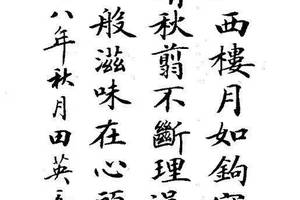 西樓月如鉤
秋翦不斷理
般滋味在心頭
八年秋月田英